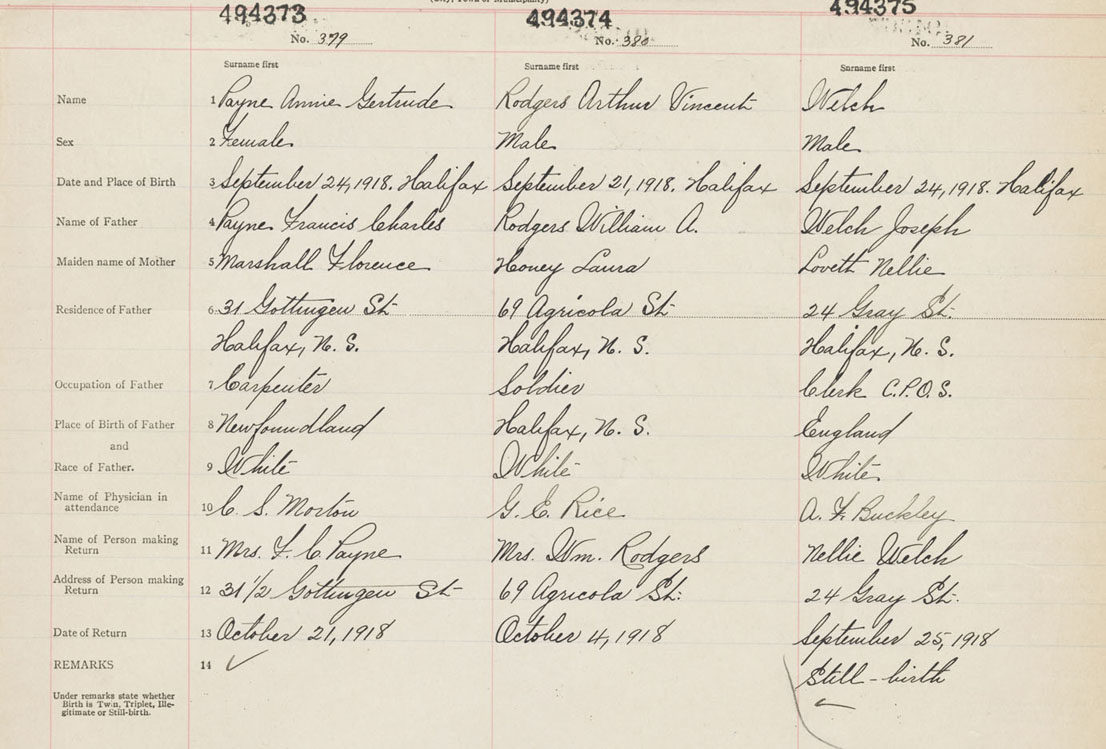 (City, Town or Municipality)
494373 494374 494375
No. 379 No. 380 No. 381
Surname first Surname first Surname first
Name 1 Payne Annie Gertrude Rodgers Arthur Vincent Welch
Sex 2 Female Male Male
Date and Place of Birth 3 September 24, 1918. Halifax September 21, 1918. Halifax September 24, 1918. Halifax
Name of Father 4 Payne Francis Charles Rodgers William A. Welch Joseph
Maiden name of Mother 5 Marshall Florence Honey Laura Lovett Nellie
Residence of Father 6 31 Gottingen St 69 Agricola St 24 Gray St.
Halifax, N. S. Halifax, N. S. Halifax, N. S.
Occupation of Father 7 Carpenter Soldier Clerk C.P.O.S.
Place of Birth of Father 8 Newfoundland Halifax, N. S. England
and
Race of Father. 9 White White White
Name of Physician in
attendance 10 C. S. Morton G. E. Rice A. F. Buckley
Name of Person making
Return 11 Mrs. F. C. Payne Mrs. Wm. Rodgers Nellie Welch
Address of Person making
Return 12 31 1/2 Gottingen St 69 Agricola St. 24 Gray St.
Date of Return 13 October 21, 1918 October 4, 1918 September 25, 1918
REMARKS 14 ✓ Still-birth
Under remarks state whether
Birth is Twin, Triplet, Ille-
gitimate or Still-birth.